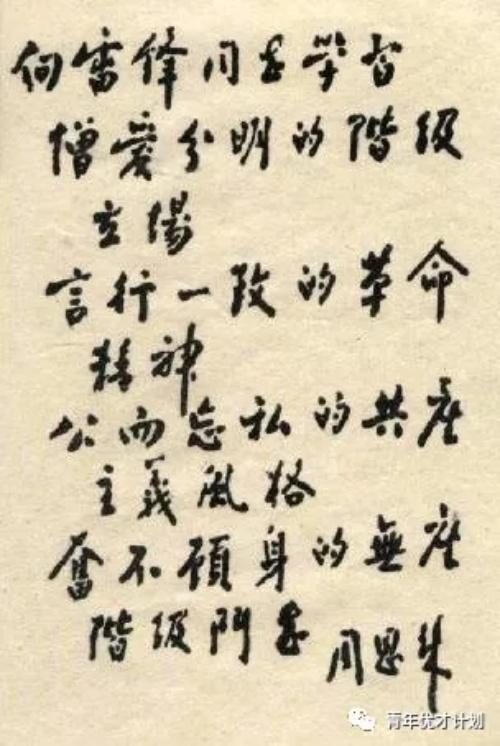 向雷锋同志学習
憎爱分明的階级
立場
言行一致的革命
精神
公而忘私的共产
主義風格
奮不顾身的無产
階级鬥志
周恩来
青年优才计划